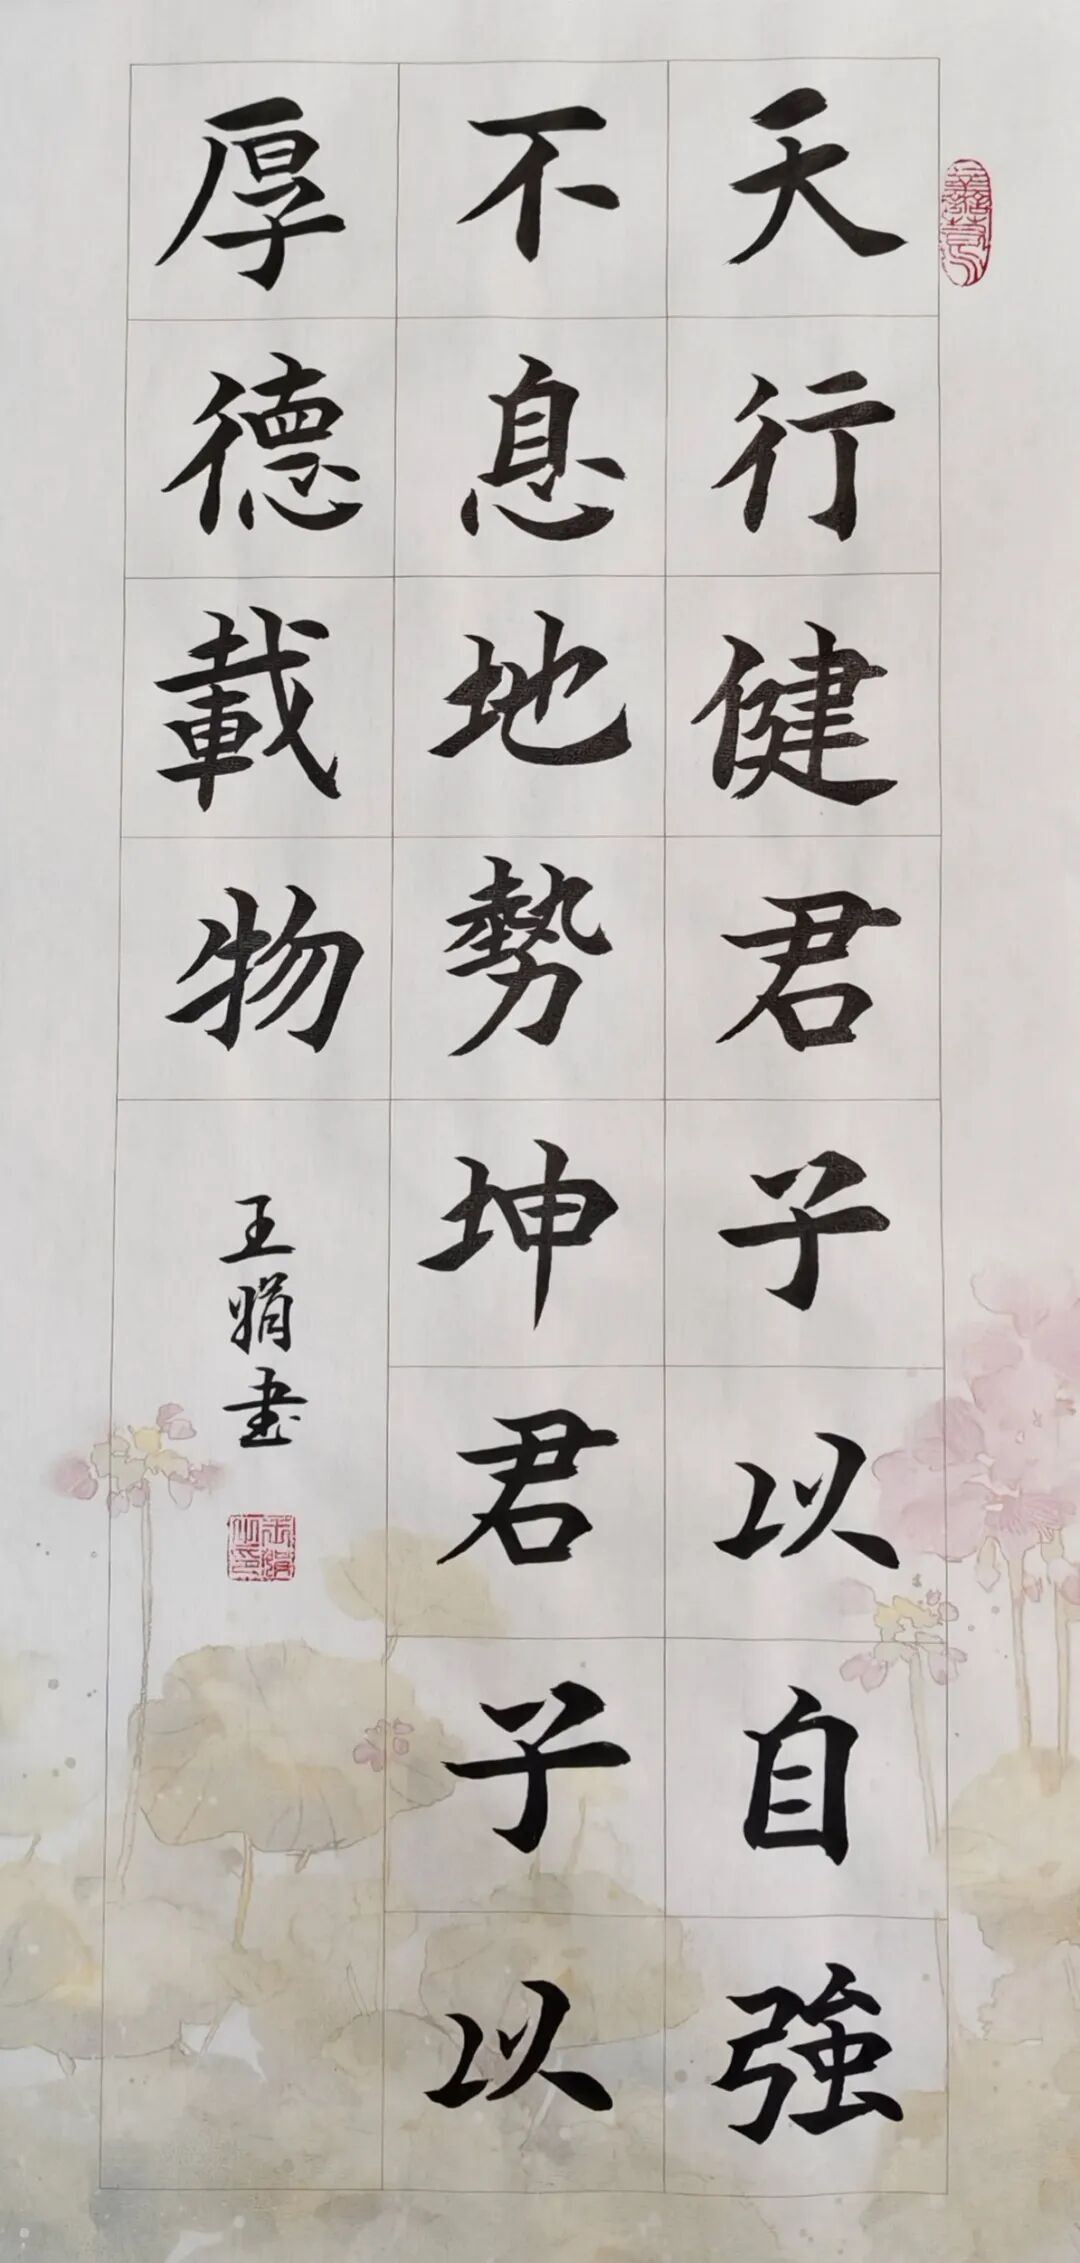 天行健君子以自強
不息地勢坤君子以
厚德載物
王娟書